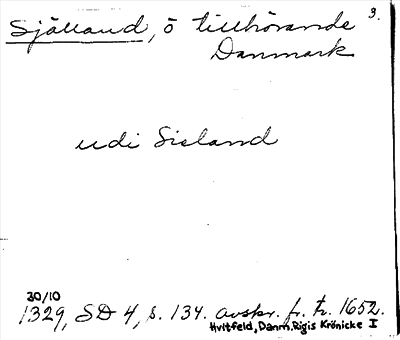 Själland, ö tillhörande 3.
Danmark
udi Sieland
30/10
1329, SD 4, s. 134. avskr. fr. tr. 1652.
Hvitfeld, Danm. Rigis Krönicke I